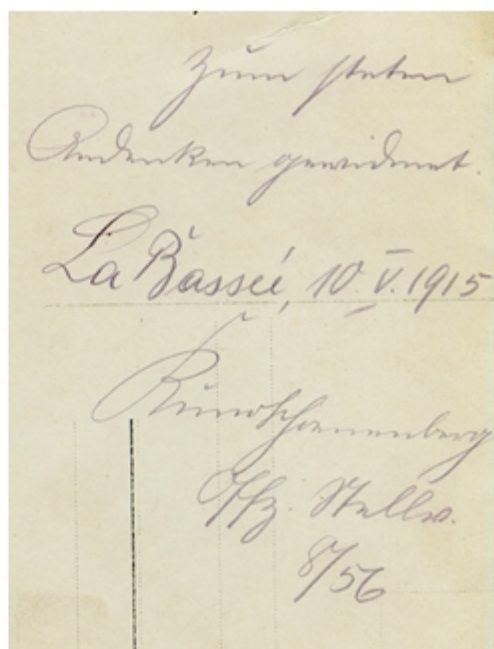 Zum steten
Andenken gewidmet.
La Basseé, 10.V.1915
Kuno
Offz. Stellv.
8/56